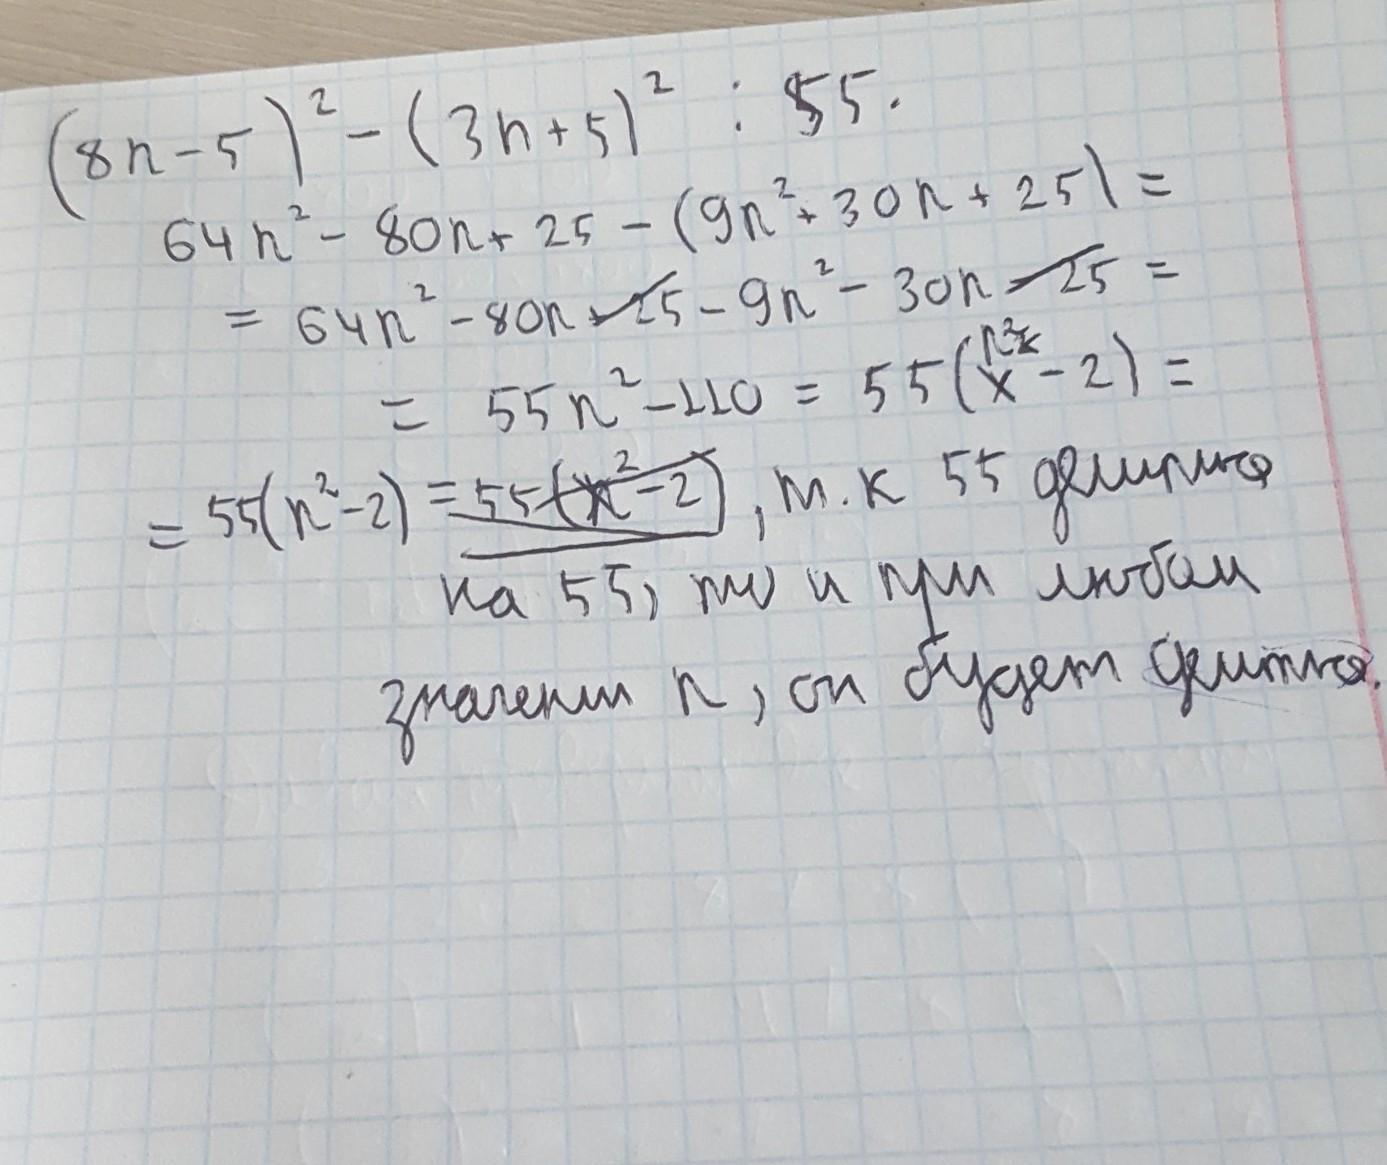 (8n-5)² - (3n+5)² : 55.
64n² - 80n + 25 - (9n² + 30n + 25) =
= 64n² - 80n + 25 - 9n² - 30n - 25 =
= 55n² - 110 = 55(n² - 2) =
= 55(n² - 2) = 55(x² - 2), т.к 55 делится
на 55, то и при любом
значении n, он будет делится.